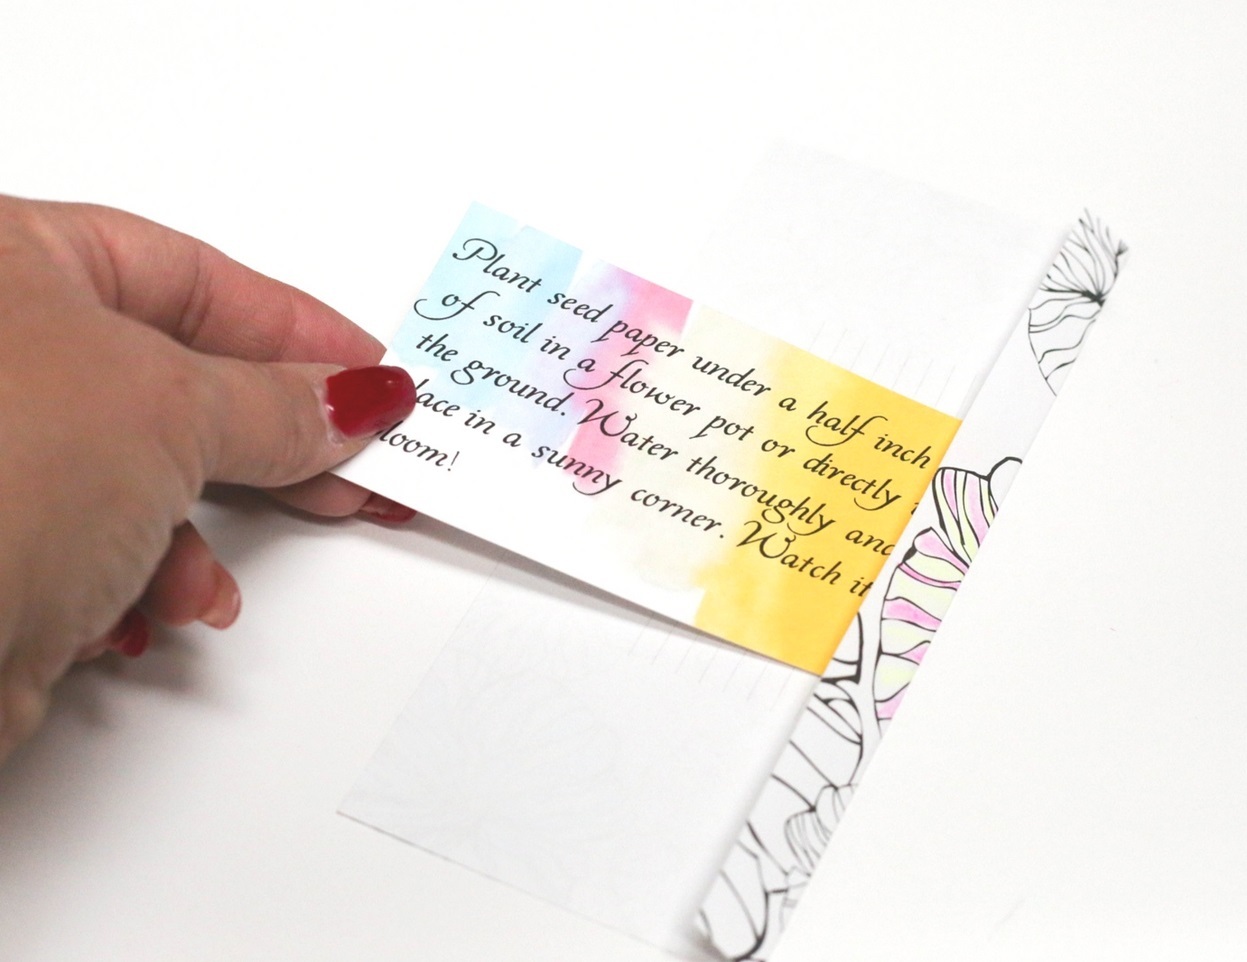 Plant seed paper under a half inch
of soil in a flower pot or directly
the ground. Water thoroughly and
lace in a sunny corner. Watch it
loom!